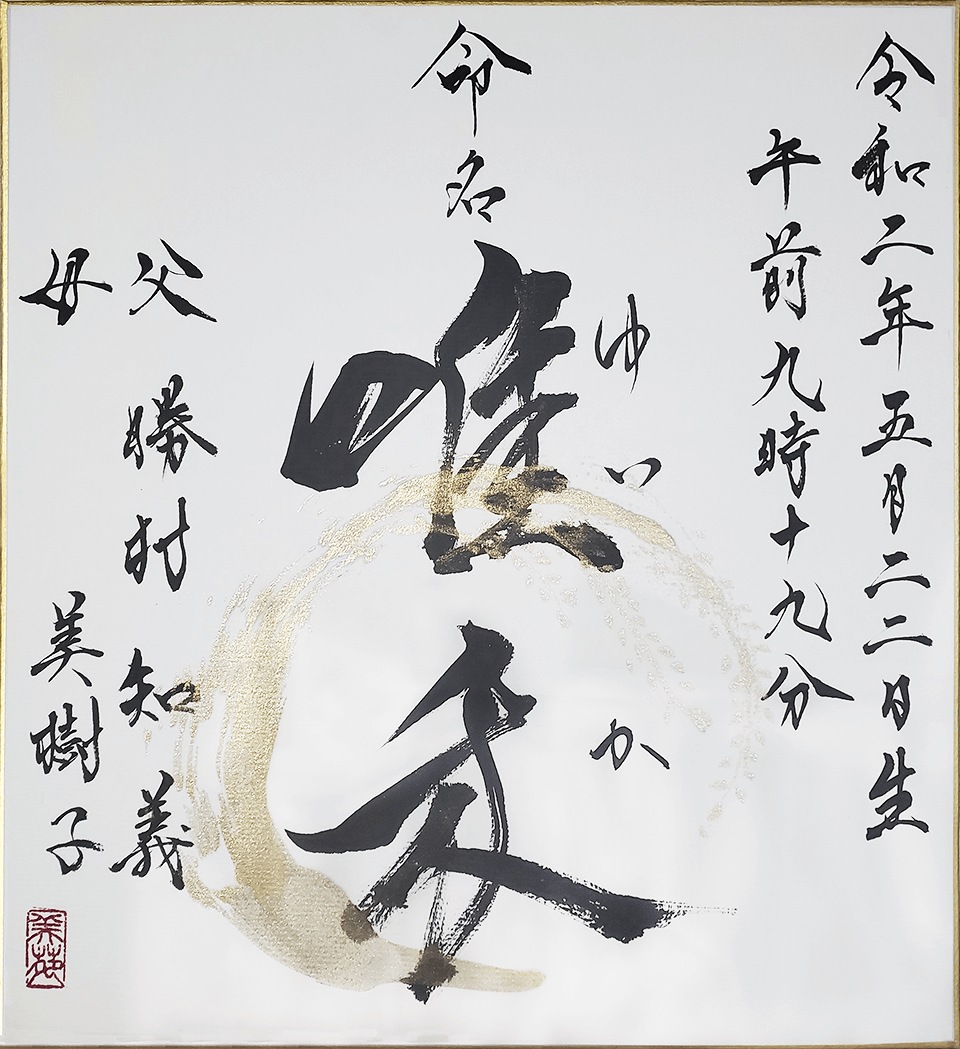 令和二年五月二二日生
午前九時十九分
命名
唯禾
ゆいか
父 勝村 知義
母 美樹子